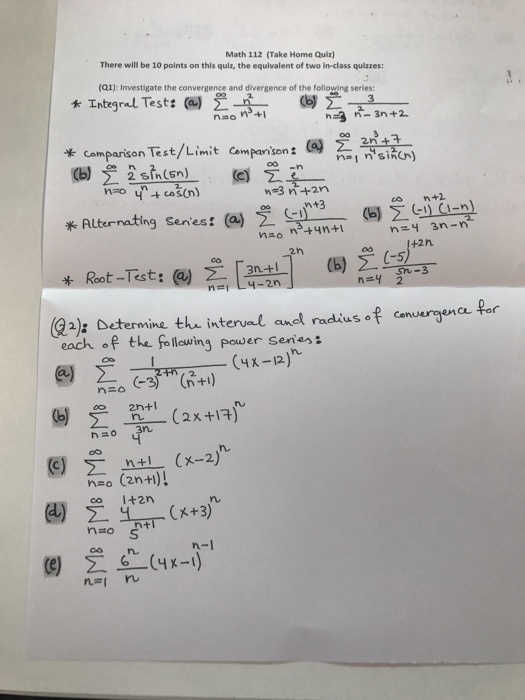 Math 112 (Take Home Quiz)
There will be 10 points on this quiz, the equivalent of two in-class quizzes:
(Q1): Investigate the convergence and divergence of the following series:
* Integral Test: (a) ∑_{n=0}^{∞} n²/(n³+1) (b) ∑_{n=3}^{∞} 3/(n²-3n+2)
* Comparison Test/Limit Comparison: (a) ∑_{n=1}^{∞} (2n³+7)/(n⁴ sin²(n))
(b) ∑_{n=0}^{∞} (2^n sin²(5n))/(4^n + cos²(n)) (c) ∑_{n=3}^{∞} e^{-n}/(n²+2n)
* Alternating Series: (a) ∑_{n=0}^{∞} (-1)^{n+3}/(n³+4n+1) (b) ∑_{n=4}^{∞} (-1)^{n+2}(1-n)/(3n-n²)
* Root-Test: (a) ∑_{n=1}^{∞} [(3n+1)/(4-2n)]^{2n} (b) ∑_{n=4}^{∞} (-5)^{1+2n}/2^{5n-3}
(Q2): Determine the interval and radius of convergence for
each of the following power series:
(a) ∑_{n=0}^{∞} 1/((-3)^{2+n}(n²+1)) (4x-12)^n
(b) ∑_{n=0}^{∞} n^{2n+1}/4^{3n} (2x+17)^n
(c) ∑_{n=0}^{∞} (n+1)/(2n+1)! (x-2)^n
(d) ∑_{n=0}^{∞} 4^{1+2n}/5^{n+1} (x+3)^n
(e) ∑_{n=1}^{∞} 6^n/n (4x-1)^{n-1}